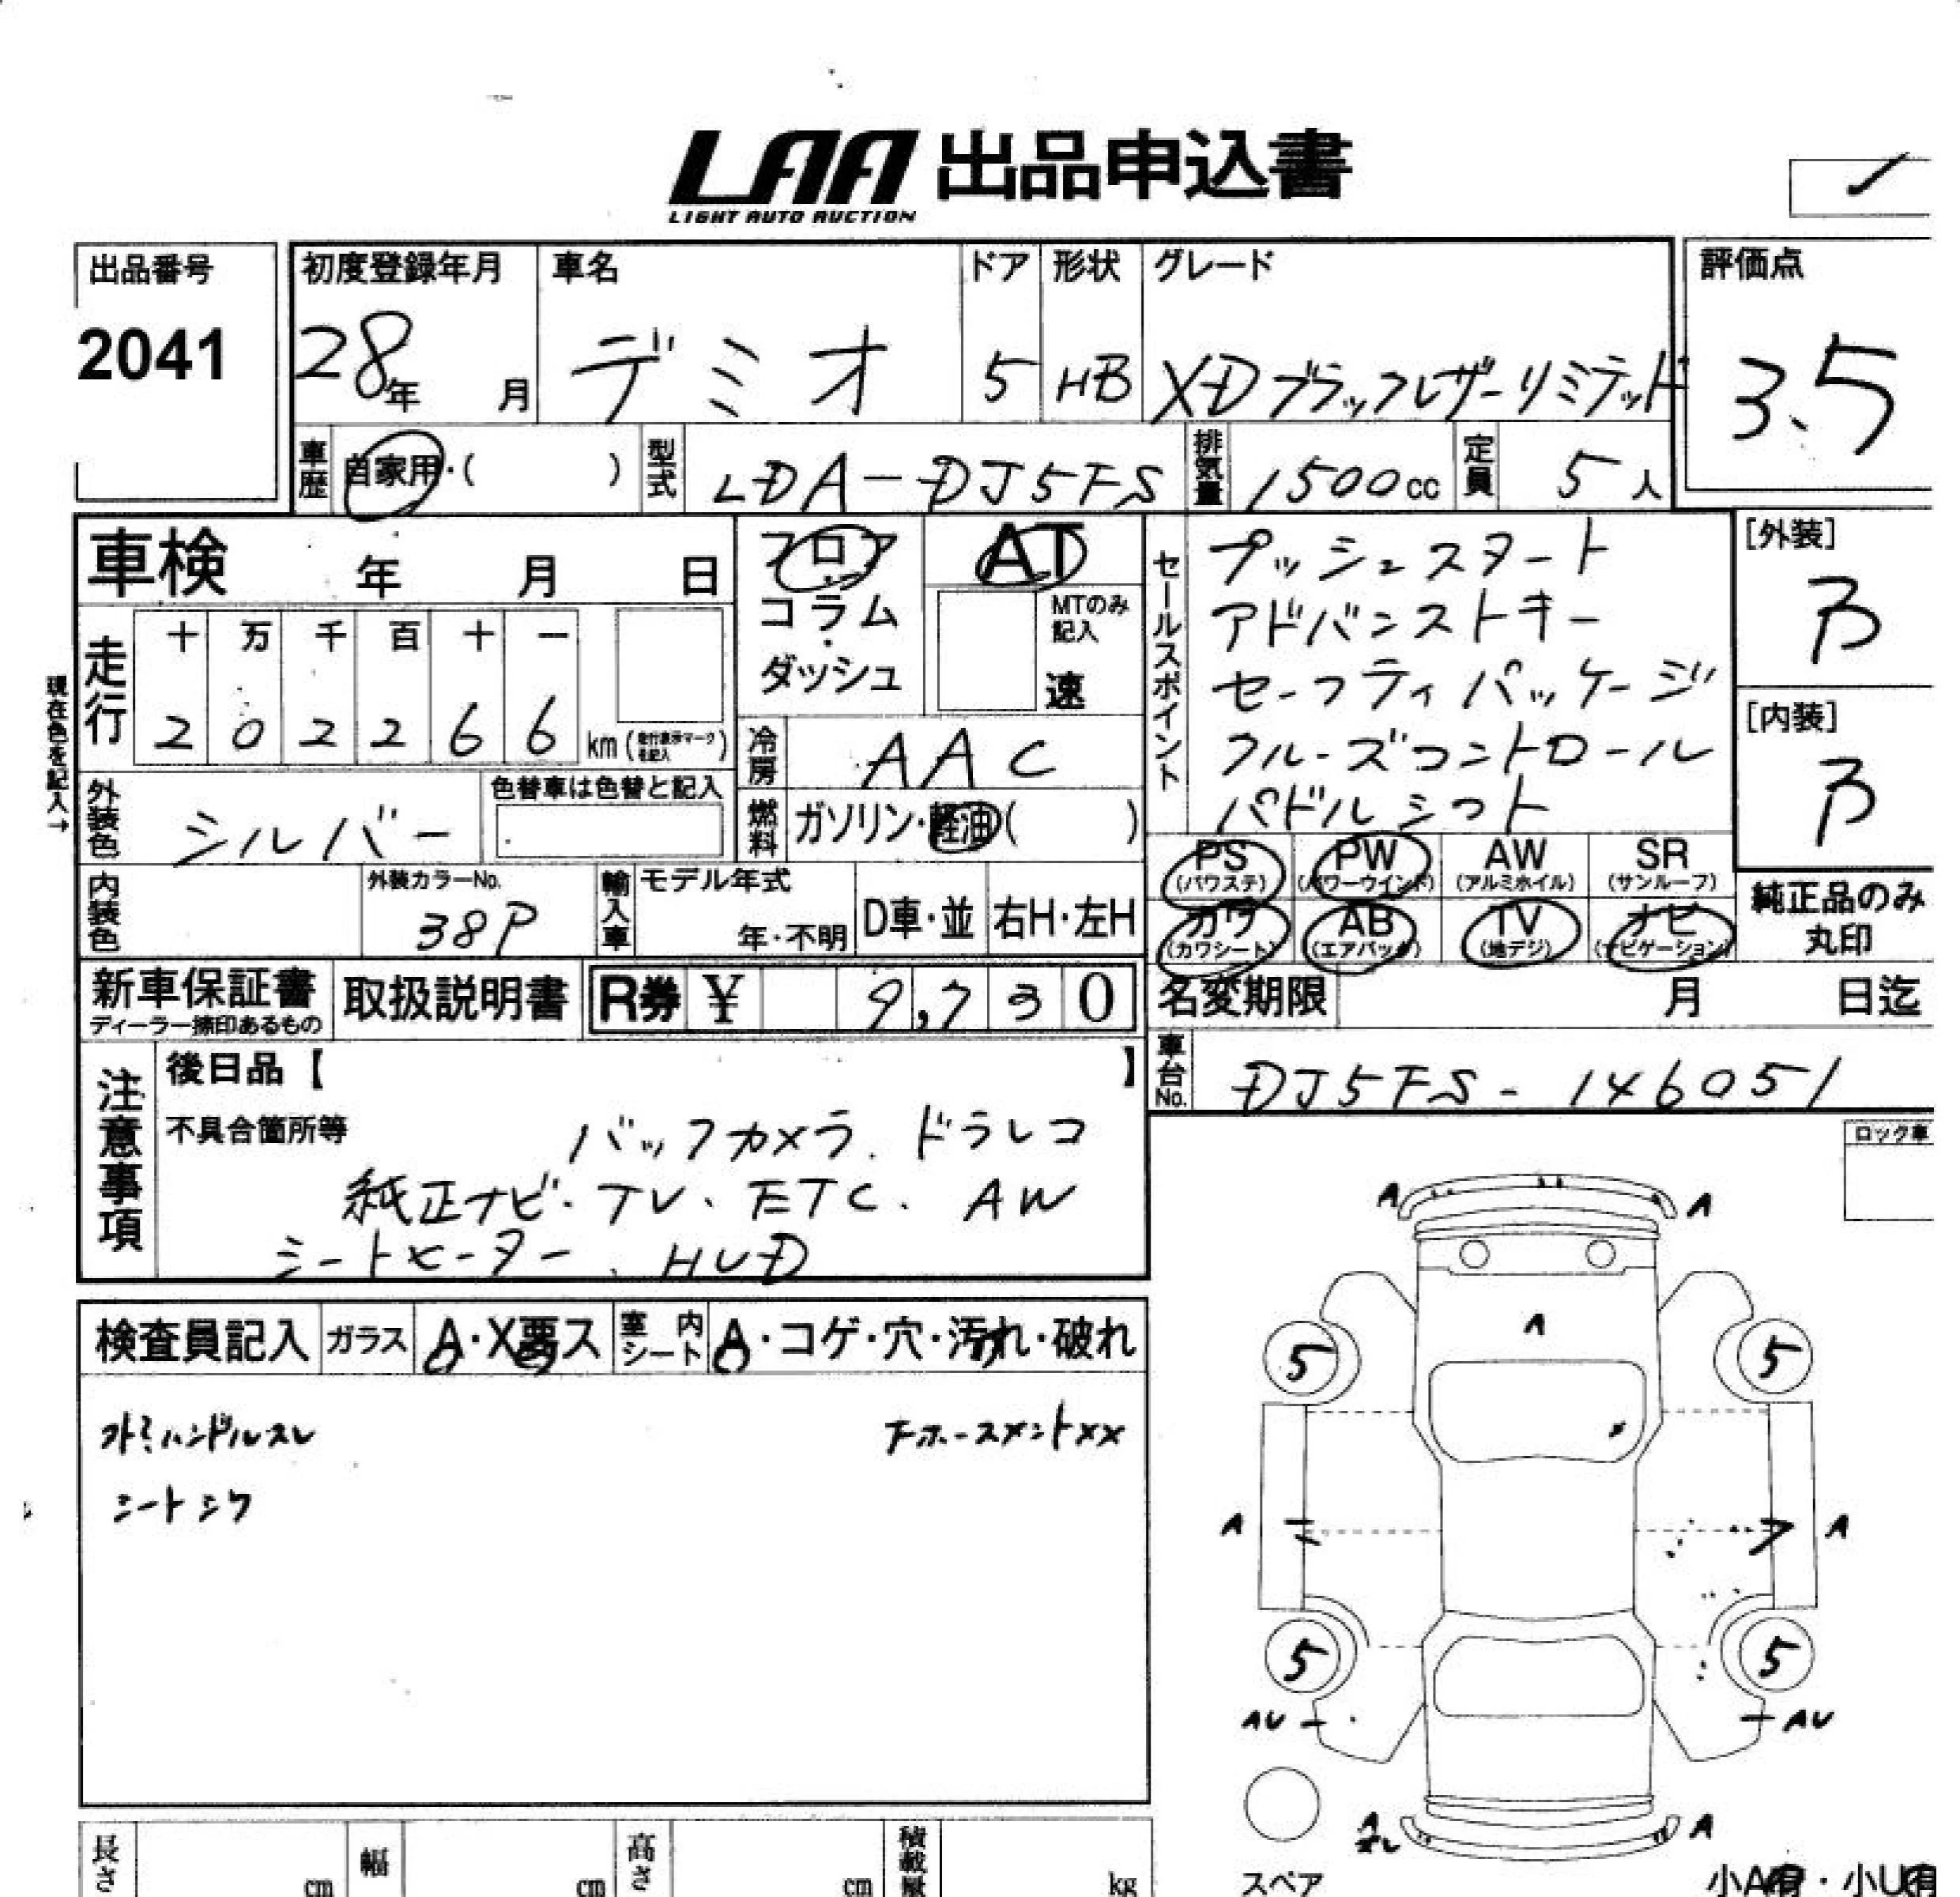 LAA 出品申込書
LIGHT AUTO AUCTION
出品番号
2041
初度登録年月
28年 月
車名
デミオ
ドア
5
形状
HB
グレード
XDブラックレザーリミテッド
評価点
3.5
車歴 自家用・( )
型式 LDA-DJ5FS
排気量 1500cc
定員 5人
車検 年 月 日
フロア
コラム
・
ダッシュ
AT
MTのみ
記入
速
セールスポイント
プッシュスタート
アドバンストキー
セーフティパッケージ
クルーズコントロール
パドルシフト
[外装]
B
[内装]
B
現在色を記入→
走行
十 万 千 百 十 一
2 0 2 2 6 6 km (走行表示マークを記入)
冷房 AAC
外装色 シルバー
色替車は色替と記入
燃料 ガソリン・軽油( )
内装色
外装カラーNo.
38P
輸入車
モデル年式
年・不明
D車・並
右H・左H
PS (パワステ)
PW (パワーウインド)
AW (アルミホイル)
SR (サンルーフ)
カワ (カワシート)
AB (エアバック)
TV (地デジ)
ナビ (ナビゲーション)
純正品のみ
丸印
新車保証書
ディーラー捺印あるもの
取扱説明書
R券 ¥ 9,730
名変期限 月 日迄
車台No. DJ5FS-146051
注意事項
後日品【 】
不具合箇所等
バックカメラ、ドラレコ
純正ナビ・TV、ETC、AW
シートヒーター、HUD
ロック車
検査員記入
ガラス A・X要ス
室内シート A・コゲ・穴・汚れ・破れ
ハンドルスレ
シートシワ
ホースメントXX
A A
A
5 5
A A
5 5
AU AU
A A
スペア
小A有・小U有
長さ cm
幅 cm
高さ cm
積載量 kg